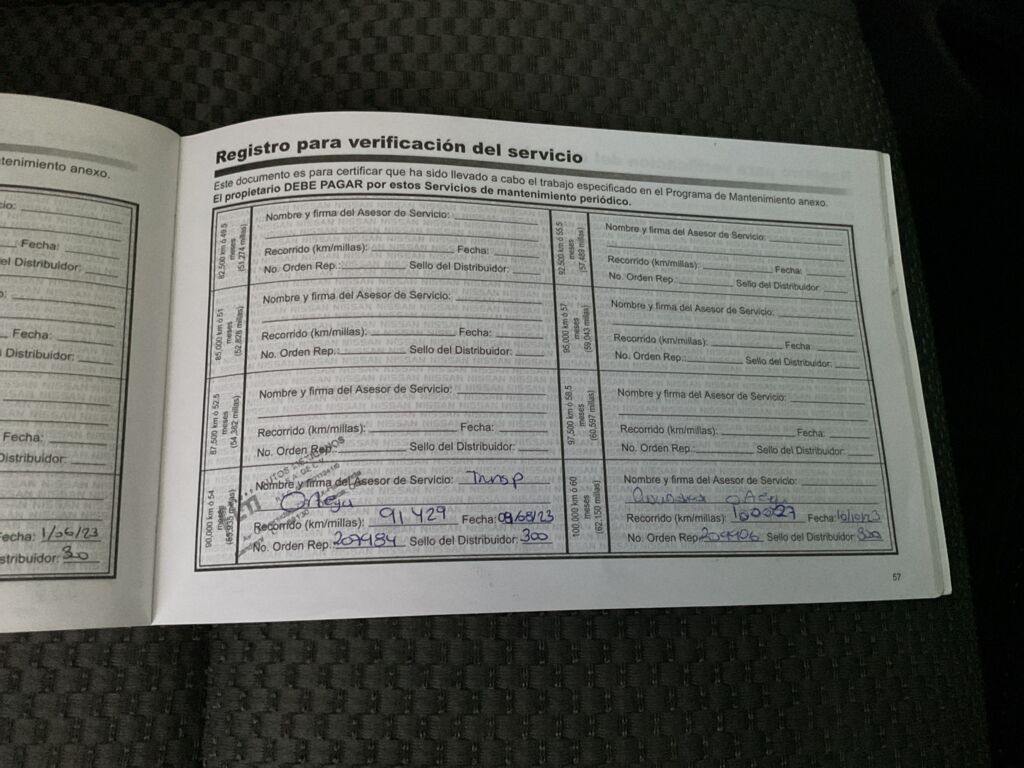 tenimiento anexo.
cio:
Fecha:
el Distribuidor:
o:
Fecha:
l Distribuidor:
Fecha:
Distribuidor:
Fecha: 1/06/23
stribuidor: 300
Registro para verificación del servicio
Este documento es para certificar que ha sido llevado a cabo el trabajo especificado en el Programa de Mantenimiento anexo.
El propietario DEBE PAGAR por estos Servicios de mantenimiento periódico.
82,500 km ó 49.5
meses
(51,274 millas)
Nombre y firma del Asesor de Servicio:
Recorrido (km/millas): Fecha:
No. Orden Rep.: Sello del Distribuidor:
85,000 km ó 51
meses
(52,828 millas)
Nombre y firma del Asesor de Servicio:
Recorrido (km/millas): Fecha:
No. Orden Rep.: Sello del Distribuidor:
87,500 km ó 52.5
meses
(54,382 millas)
Nombre y firma del Asesor de Servicio:
Recorrido (km/millas): Fecha:
No. Orden Rep.: Sello del Distribuidor:
90,000 km ó 54
meses
(55,935 millas)
Nombre y firma del Asesor de Servicio:
Ortega
Recorrido (km/millas): 91 429 Fecha: 09/08/23
No. Orden Rep.: 207984 Sello del Distribuidor: 300
92,500 km ó 55.5
meses
(57,489 millas)
Nombre y firma del Asesor de Servicio:
Recorrido (km/millas): Fecha:
No. Orden Rep.: Sello del Distribuidor:
95,000 km ó 57
meses
(59,043 millas)
Nombre y firma del Asesor de Servicio:
Recorrido (km/millas): Fecha:
No. Orden Rep.: Sello del Distribuidor:
97,500 km ó 58.5
meses
(60,597 millas)
Nombre y firma del Asesor de Servicio:
Recorrido (km/millas): Fecha:
No. Orden Rep.: Sello del Distribuidor:
100,000 km ó 60
meses
(62,150 millas)
Nombre y firma del Asesor de Servicio:
Recorrido (km/millas): 100027 Fecha: 10/10/23
No. Orden Rep.: Sello del Distribuidor: 300
57